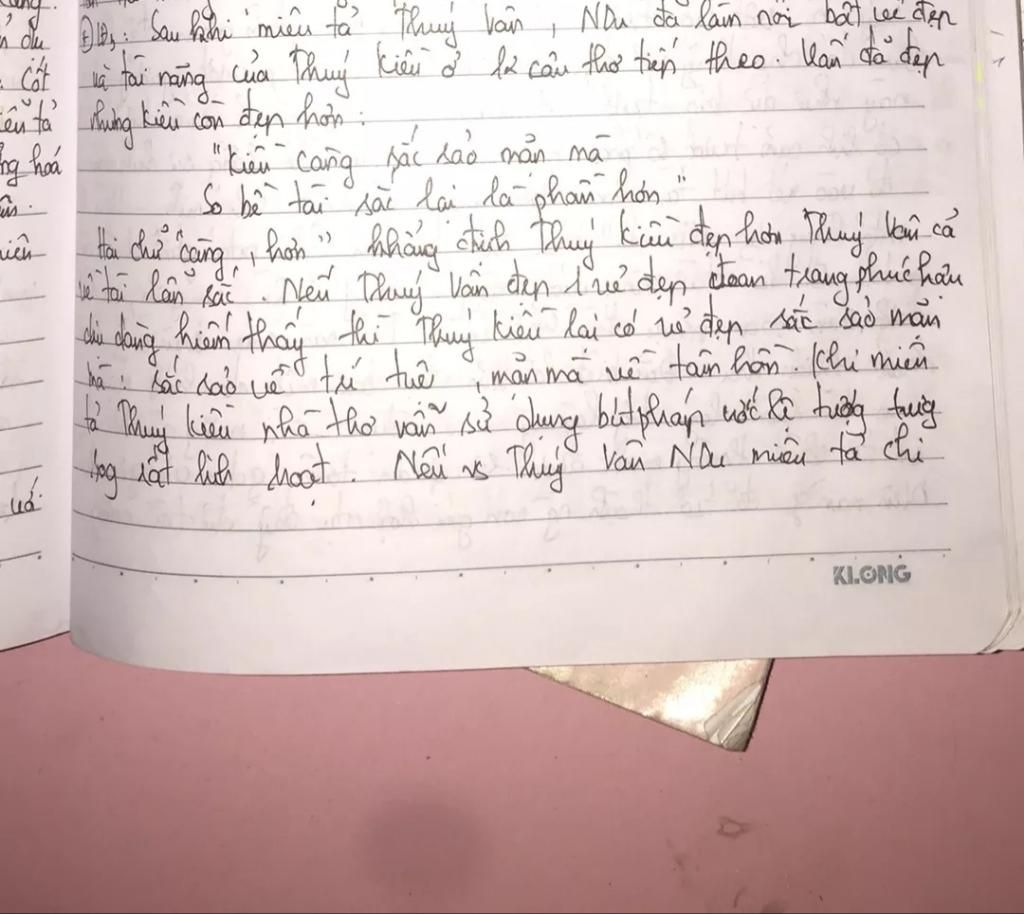 Sau khi miêu tả Thuý Vân, NDu đã làm nổi bật vẻ đẹp
và tài năng của Thuý Kiều ở 12 câu thơ tiếp theo. Vân đã đẹp
nhưng Kiều còn đẹp hơn:
"Kiều càng sắc sảo mặn mà
So bề tài sắc lại là phần hơn"
Hai chữ "càng, hơn" khẳng định Thuý Kiều đẹp hơn Thuý Vân cả
về tài lẫn sắc. Nếu Thuý Vân đẹp 1 vẻ đẹp đoan trang phúc hậu
dịu dàng hiếm thấy thì Thuý Kiều lại có vẻ đẹp sắc sảo mặn
mà: sắc sảo về trí tuệ, mặn mà về tâm hồn. Khi miêu
tả Thuý Kiều nhà thơ vẫn sử dụng bút pháp ước lệ tượng trưng
rất linh hoạt. Nếu vs Thuý Vân NDu miêu tả chi
KLONG